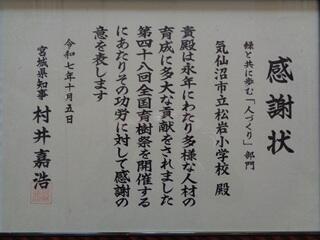 感謝状
緑と共に歩む「人づくり」部門
気仙沼市立松岩小学校 殿
貴殿は永年にわたり多様な人材の
育成に多大な貢献をされました
第四十八回全国育樹祭を開催する
にあたりその功労に対して感謝の
意を表します
令和七年十月五日
宮城県知事 村井嘉浩